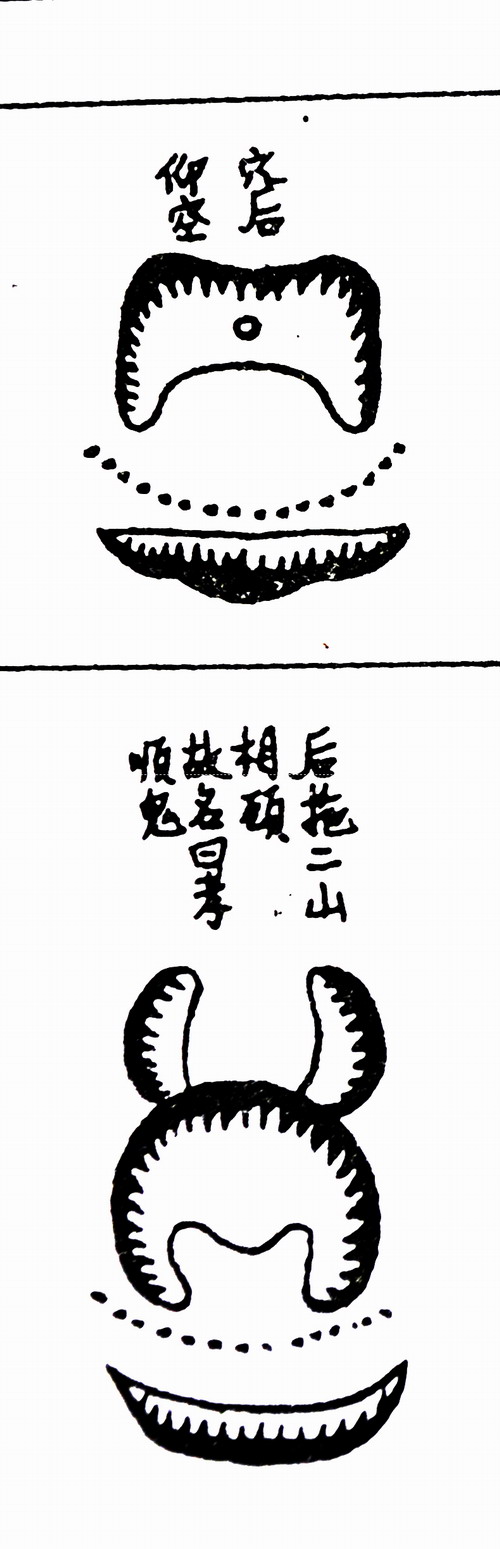 穴后
仰空
后拖二山
相頋
故名曰孝
順鬼